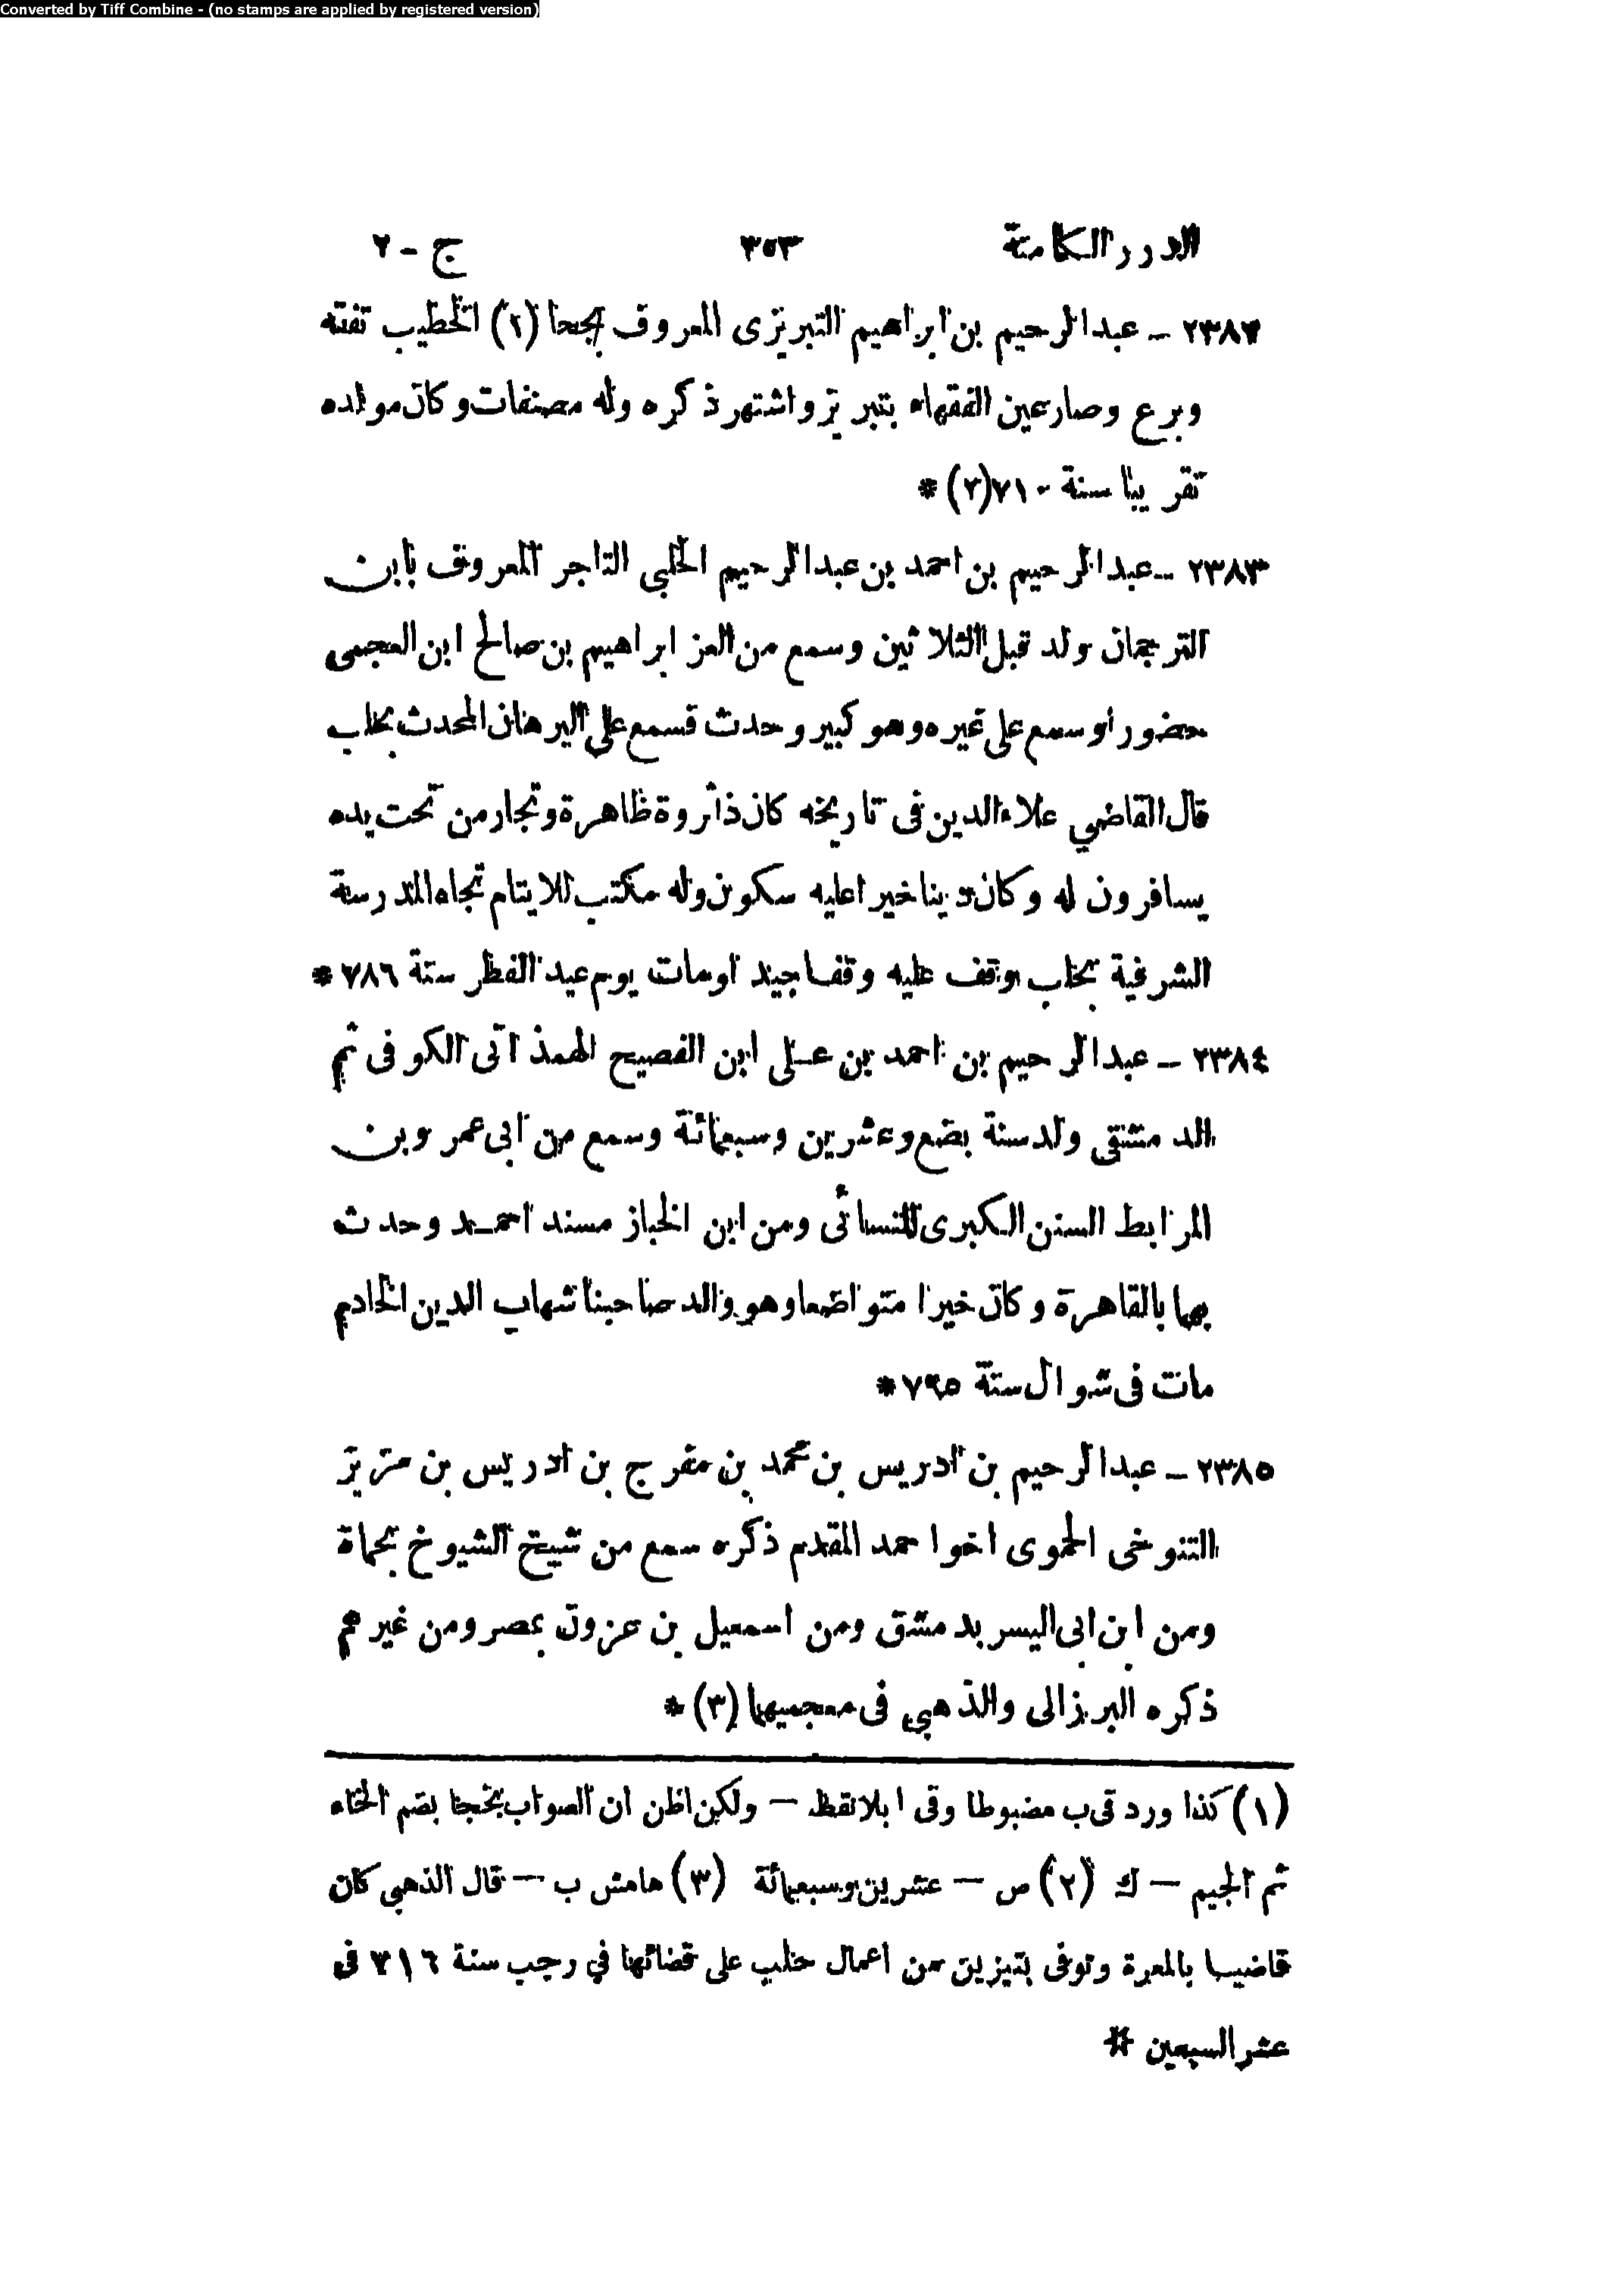 Converted by Tiff Combine - (no stamps are applied by registered version)
الدرر الكامنة ٣٥٣ ج - ٢
٢٣٨٢ - عبد الرحيم بن ابراهيم التبريزى المعروف بجحا (١) الخطيب تفقه
وبرع وصار عين الفقهاء بتبريز واشتهر ذكره وله مصنفات وكان مولده
تقريبا سنة ٧١٠ (٢) *
٢٣٨٣ - عبد الرحيم بن احمد بن عبد الرحيم الحلبى التاجر المعروف بابن
الترجمان ولد قبل الثلاثين وسمع من العز ابراهيم بن صالح ابن العجمى
حضورا وسمع على غيره وهو كبير وحدث قسمع على البرهان المحدث بحلب
قال القاضي علاء الدين فى تاريخه كان ذا ثروة ظاهرة وتجار من تحت يده
يسافرون له وكان دينا خيرا عليه سكون وله مكتب للايتام تجاه المدرسة
الشرفية بحلب ووقف عليه وقفا جيدا ومات يوم عيد الفطر سنة ٧٨٦ *
٢٣٨٤ - عبد الرحيم بن احمد بن عـلى ابن الفصيح الهمذانى الكوفى ثم
الدمشقى ولد سنة بضع وعشرين وسبعمائة وسمع من ابى عمرو بن
المرابط السنن الكبرى للنسائى ومن ابن الخباز مسند احمـد وحدث
بهما بالقاهرة وكان خيرا متواضعا وهو والد صاحبنا شهاب الدين الخادم
مات فى شوال سنة ٧٩٥ *
٢٣٨٥ - عبد الرحيم بن ادريس بن محمد بن مفرج بن ادريس بن مزيز
التنوخى الحموى اخو احمد المقدم ذكره سمع من شيخ الشيوخ بحماة
ومن ابن ابى اليسر بدمشق ومن اسمعيل بن عزون بمصر ومن غيرهم
ذكره البرزالى والذهبي فى معجميهما (٣) *
(١) كذا ورد فى ب مضبوطا وفى ا بلا نقط — ولكن اظن ان الصواب بخجا بضم الخاء
ثم الجيم — ك (٢) ص — عشرين وسبعمائة (٣) هامش ب — قال الذهبي كان
قاضيا بالمعرة وتوفى بتيزين من اعمال حلب على قضائها في رجب سنة ٧١٦ فى
عشر السبعين *